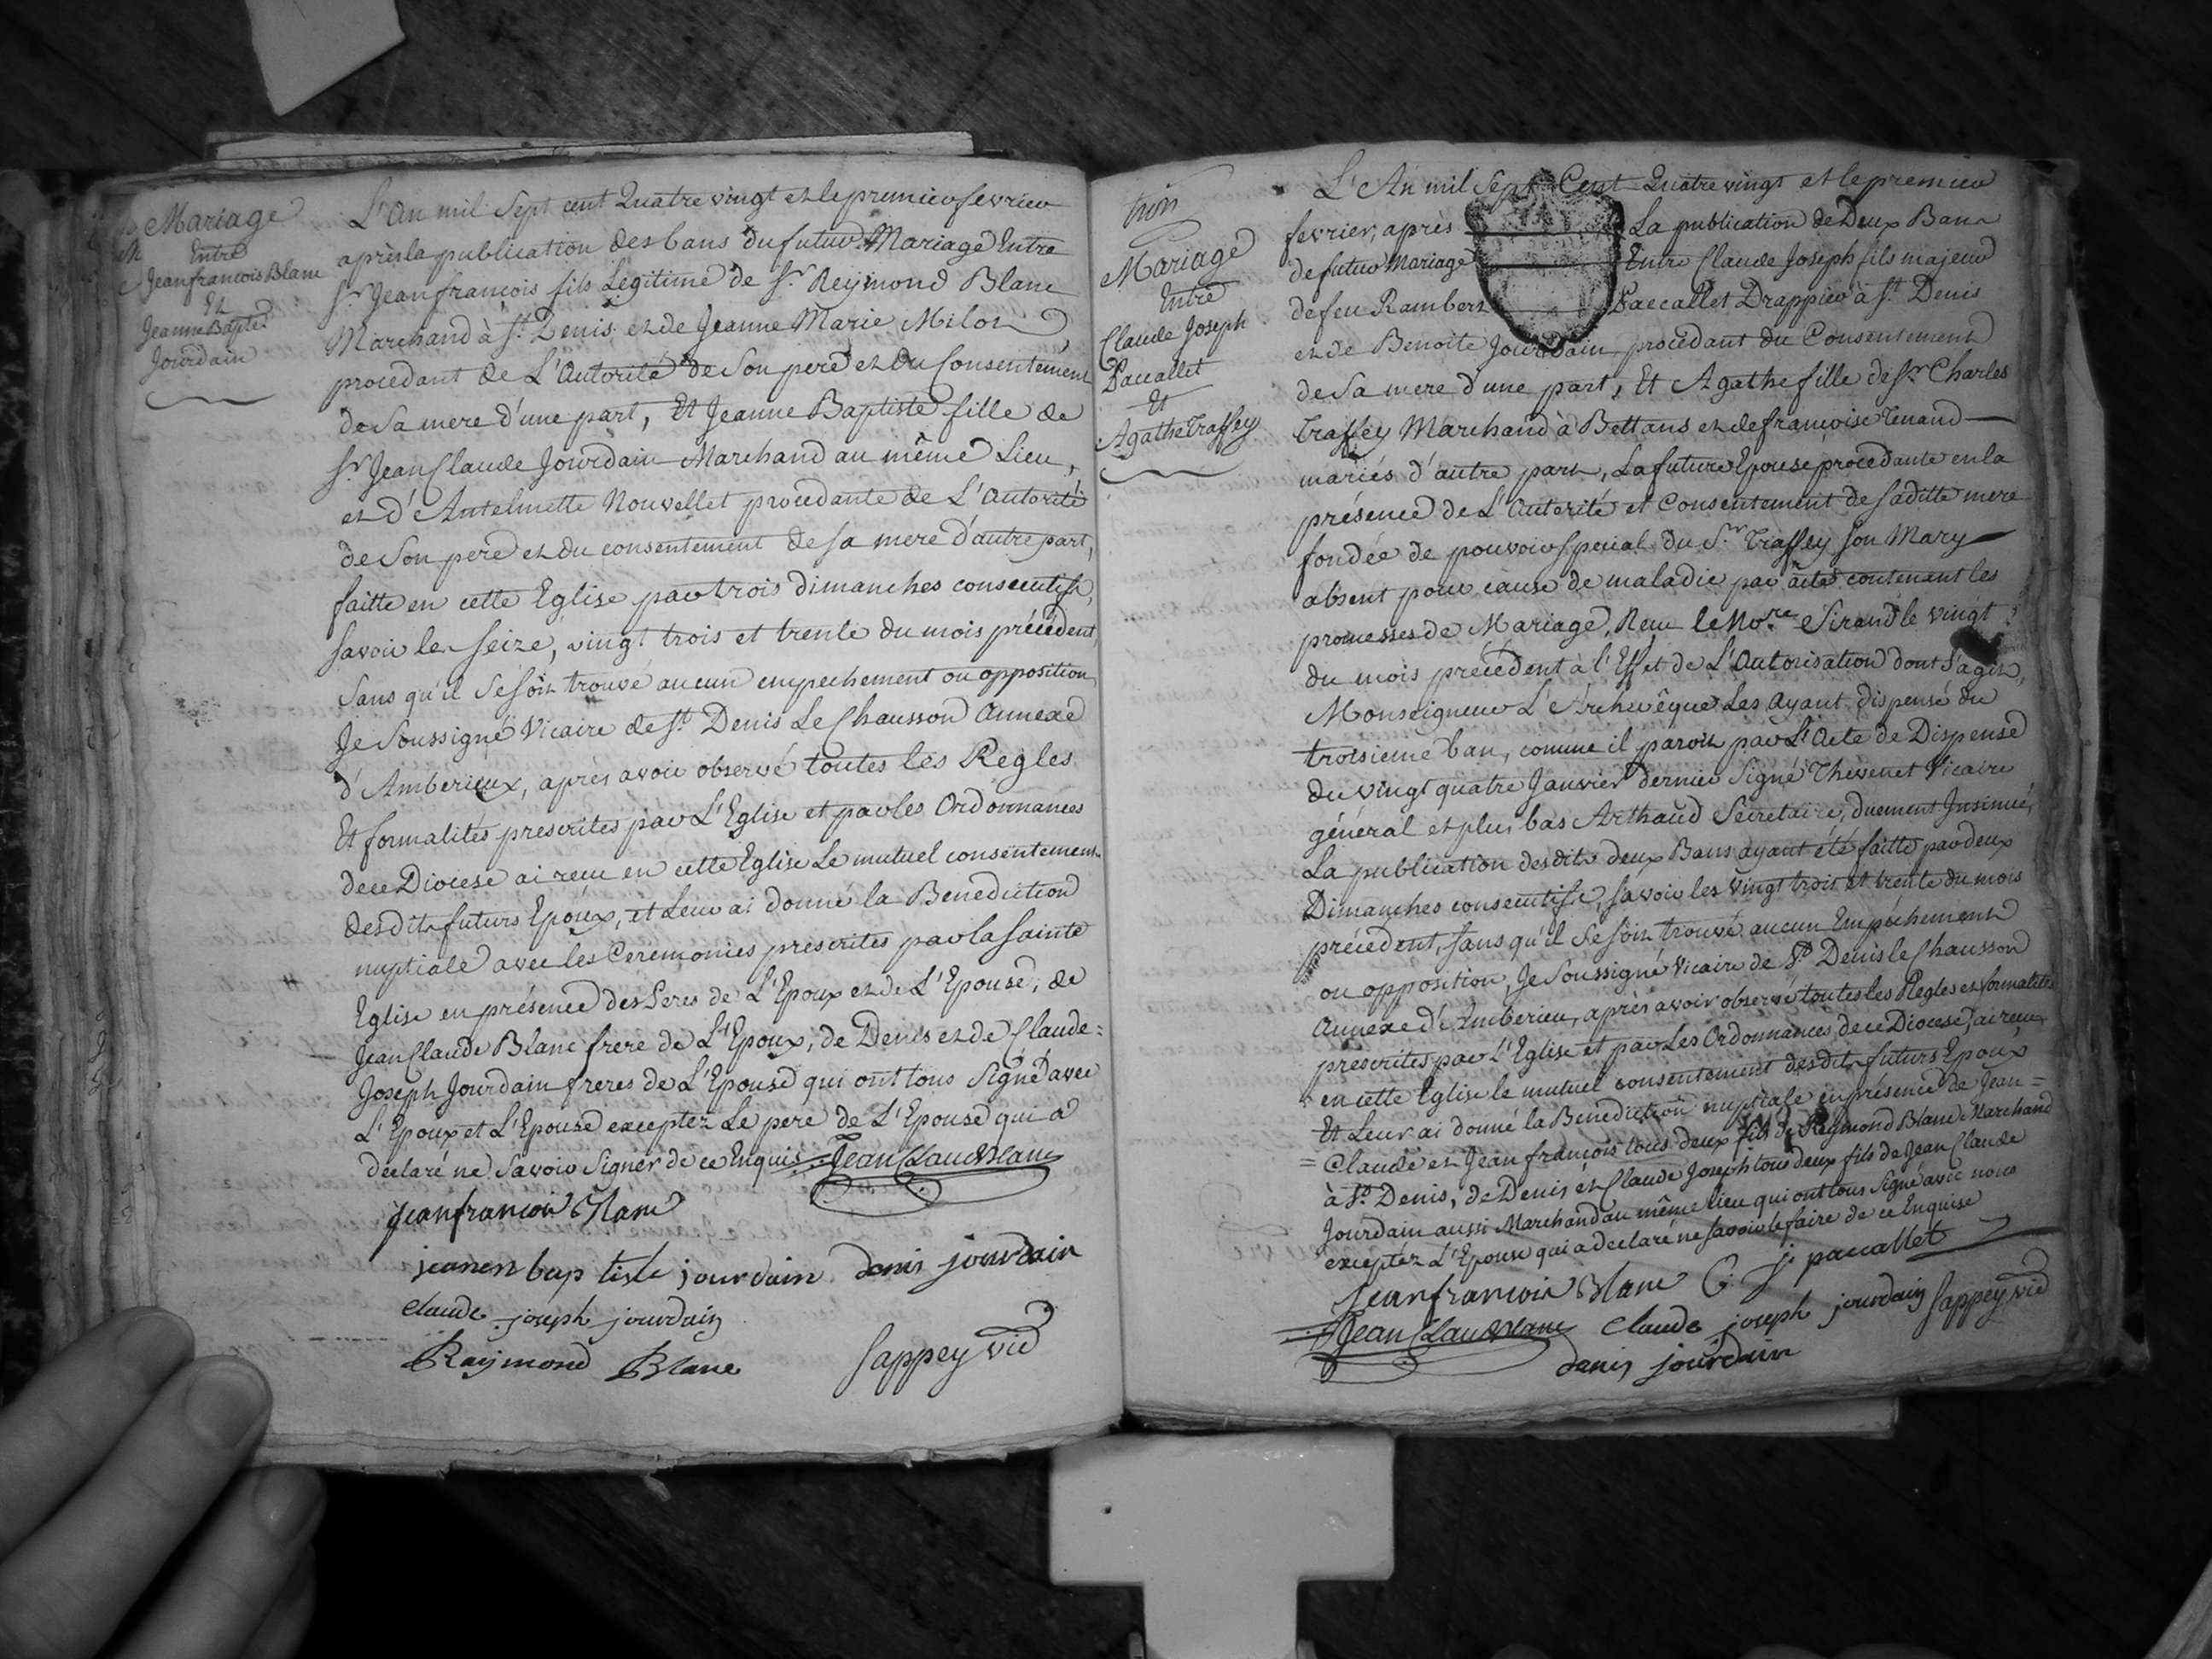 Mariage
Entre
Jeanfrancois Blanc
Et
Jeanne Bapte
Jourdain
L'An mil Sept cent Quatre vingt et le premier fevrier
après la publication des bans du futur Mariage Entre
Sr Jeanfrançois fils Legitime de Sr Reymond Blanc
Marchand à St Denis et de Jeanne Marie Milon
procedant de L'Autorité de Son pere et du Consentement
de Sa mere d'une part, Et Jeanne Baptiste fille de
Sr Jean Claude Jourdain Marchand au même Lieu,
et d'Antelmette Nouvellet procedante de L'Autorité
de Son pere et du consentement de sa mere d'autre part,
faitte en cette Eglise par trois dimanches consecutifs,
savoir le Seize, vingt trois et trente du mois précédent,
Sans qu'il Se soit trouvé aucun empechement ou opposition
Je Soussigné Vicaire de St Denis Le Chausson Annexe
d'Amberieux, après avoir observé toutes les Regles
Et formalités prescrites par L'Eglise et par les Ordonnances
de ce Diocese ai reçu en cette Eglise Le mutuel consentement
desdits futurs Epoux, et Leur ai donné la Benediction
nuptiale avec les Ceremonies prescrites par la Sainte
Eglise en présence des Peres de L'Epoux et de L'Epouse, de
Jean Claude Blanc frere de L'Epoux, de Denis et de Claude=
Joseph Jourdain freres de L'Epouse qui ont tous Signé avec
L'Epoux et L'Epouse exceptez Le pere de L'Epouse qui a
declaré ne Savoir Signer de ce Enquis. Jean Claud Blanc
jeanfrancois Blanc
jeanen bap tiste jourdain denis jourdain
Claude joseph jourdain
Raymond Blanc Sappey vic
trois
Mariage
Entre
Claude Joseph
Paccallet
Et
Agathe Traffey
L'An mil Sept Cent Quatre vingt et le premier
fevrier, après La publication de Deux Bans
de futur Mariage Entre Claude Joseph fils majeur
de feu Rambert Paccallet Drappier à St Denis
et de Benoite Jourdain procedant du Consentement
de Sa mere d'une part, Et Agathe fille de Sr Charles
Traffey Marchand à Bettans et de françoise Tenand
mariés d'autre part, La future Epouse procedante en la
présence de L'Autorité et Consentement de saditte mere
fondée de pouvoir special du Sr Traffey son Mary
absent pour cause de maladie par acte contenant les
promesses de Mariage, Reçu le Nore Sirand le vingt
du mois precedent à l'Effet de L'Autorisation dont S'agit,
Monseigneur L'Archevêque Les ayant dispensé du
troisieme ban, comme il paroit par L'Acte de Dispense
du vingt quatre Janvier dernier Signé Thevenet Vicaire
général et plus bas Arthaud Secretaire, duement Insinué,
La publication desdits deux Bans ayant été faitte par deux
Dimanches consecutifs, savoir les vingt trois et trente du mois
précédent, sans qu'il Se soit trouvé aucun Empêchement
ou opposition, Je Soussigné Vicaire de St Denis le Chausson
Annexe d'Amberieu, après avoir observé toutes les Regles et formalités
prescrites par L'Eglise et par Les Ordonnances de ce Diocese, ai reçu
en cette Eglise le mutuel consentement desdits futurs Epoux
Et Leur ai donné la Benediction nuptiale en présence de Jean=
=Claude et Jean françois tous deux fils de Reymond Blanc Marchand
à St Denis, de Denis et Claude Joseph tous deux fils de Jean Claude
Jourdain aussi Marchand au même lieu qui ont tous Signé avec nous
exceptéz L'Epouse qui a declaré ne Savoir le faire de ce Enquise
Jeanfrancois Blanc C. j. paccallet
Jean Claud Blanc Claude joseph jourdain Sappey vic
denis jourdain